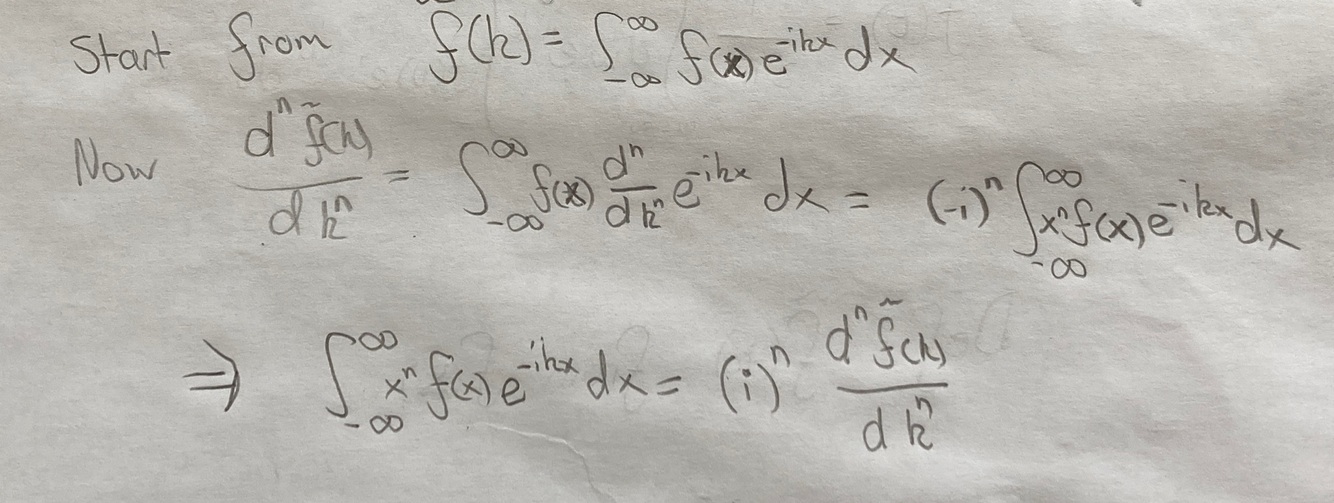 Start from f̃(k) = ∫_{-∞}^{∞} f(x) e^{-ikx} dx
Now dⁿ f̃(k) / dkⁿ = ∫_{-∞}^{∞} f(x) dⁿ/dkⁿ e^{-ikx} dx = (-i)ⁿ ∫_{-∞}^{∞} xⁿ f(x) e^{-ikx} dx
⇒ ∫_{-∞}^{∞} xⁿ f(x) e^{-ikx} dx = (i)ⁿ dⁿ f̃(k) / dkⁿ